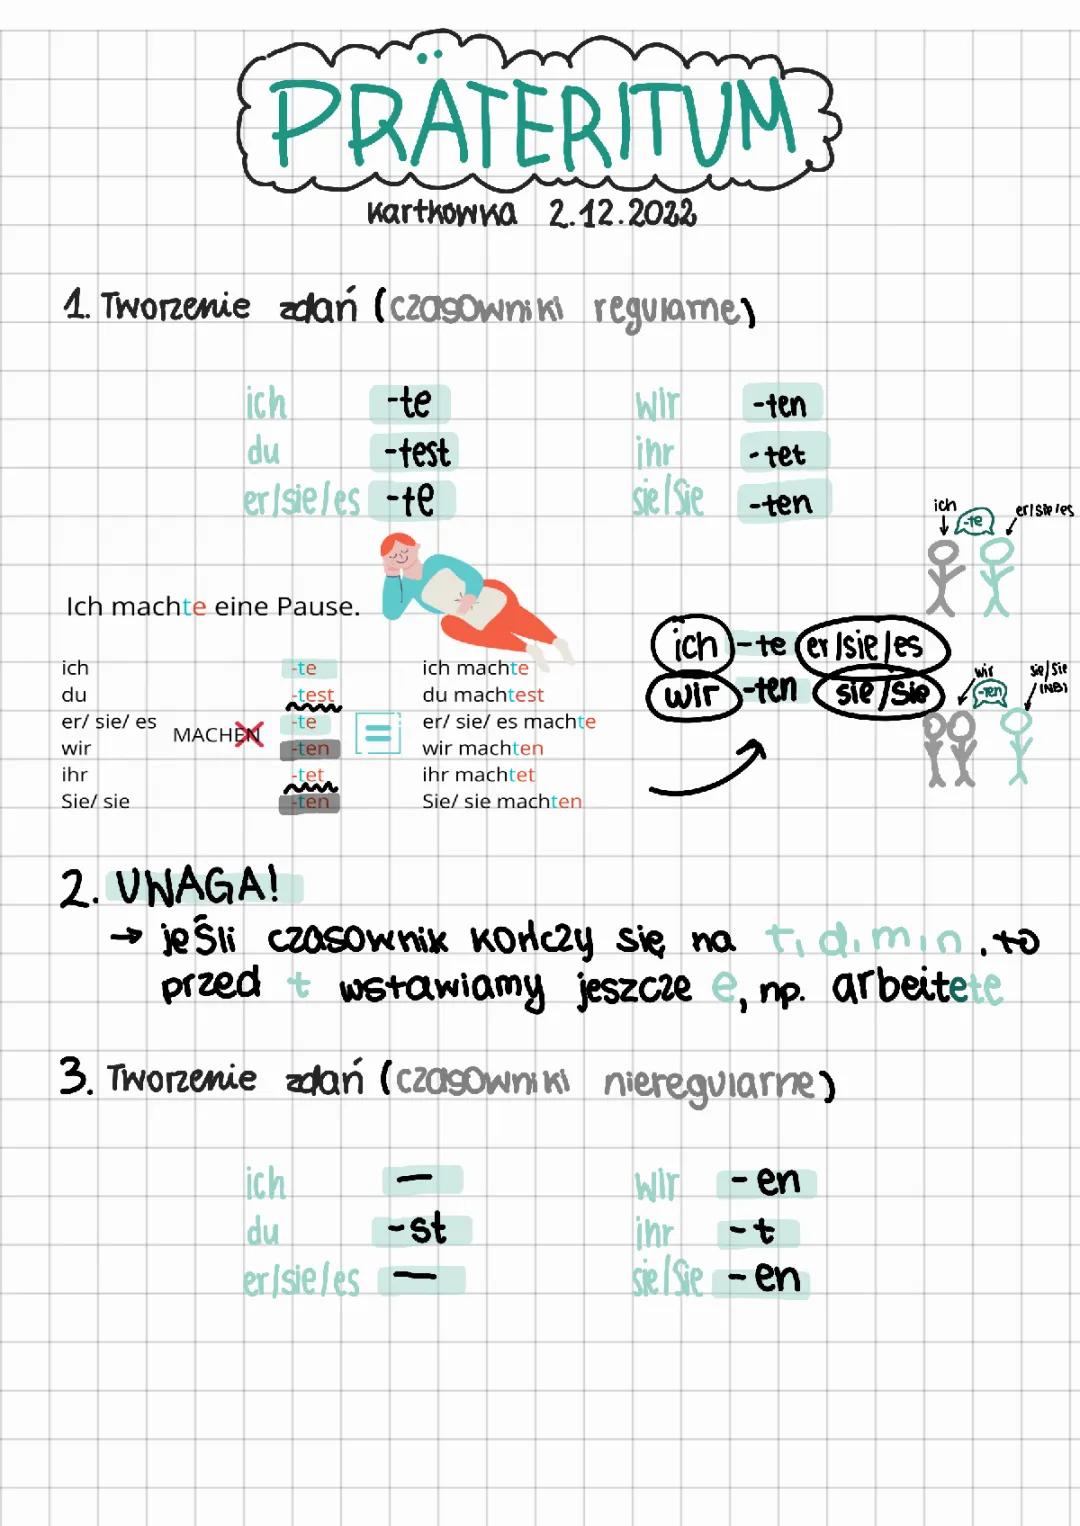 PRÄTERITUM
Kartkówka 2.12.2022
1. Tworzenie zdań (czasowniki regularne)
ich -te wir -ten
du -test ihr -tet
er/sie/es -te sie/Sie -ten
ich -te er/sie/es
Ich machte eine Pause.
ich -te er/sie/es
wir -ten sie/Sie
wir -ten sie/Sie (NB)
ich -te ich machte
du -test du machtest
er/ sie/ es MACHEN -te = er/ sie/ es machte
wir -ten wir machten
ihr -tet ihr machtet
Sie/ sie -ten Sie/ sie machten
2. UWAGA!
→ jeśli czasownik kończy się na t, d, m, n, to
przed t wstawiamy jeszcze e, np. arbeitete
3. Tworzenie zdań (czasowniki nieregularne)
ich — wir -en
du -st ihr -t
er/sie/es — sie/Sie -en